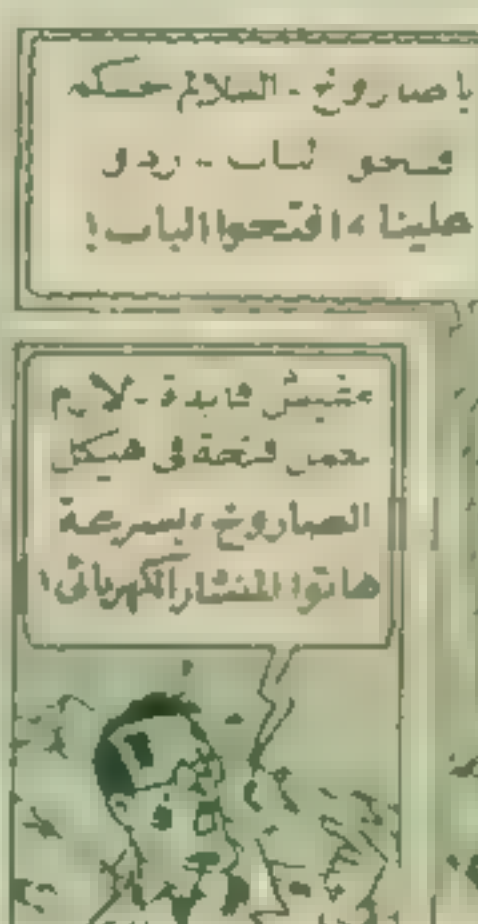 يا صاروخ - السلالم
الباب - ردوا
علينا، افتحوا الباب!
مفيش فايدة - لازم
نعمل فتحة في هيكل
الصاروخ، بسرعة
هاتوا المنشار الكهربائي!